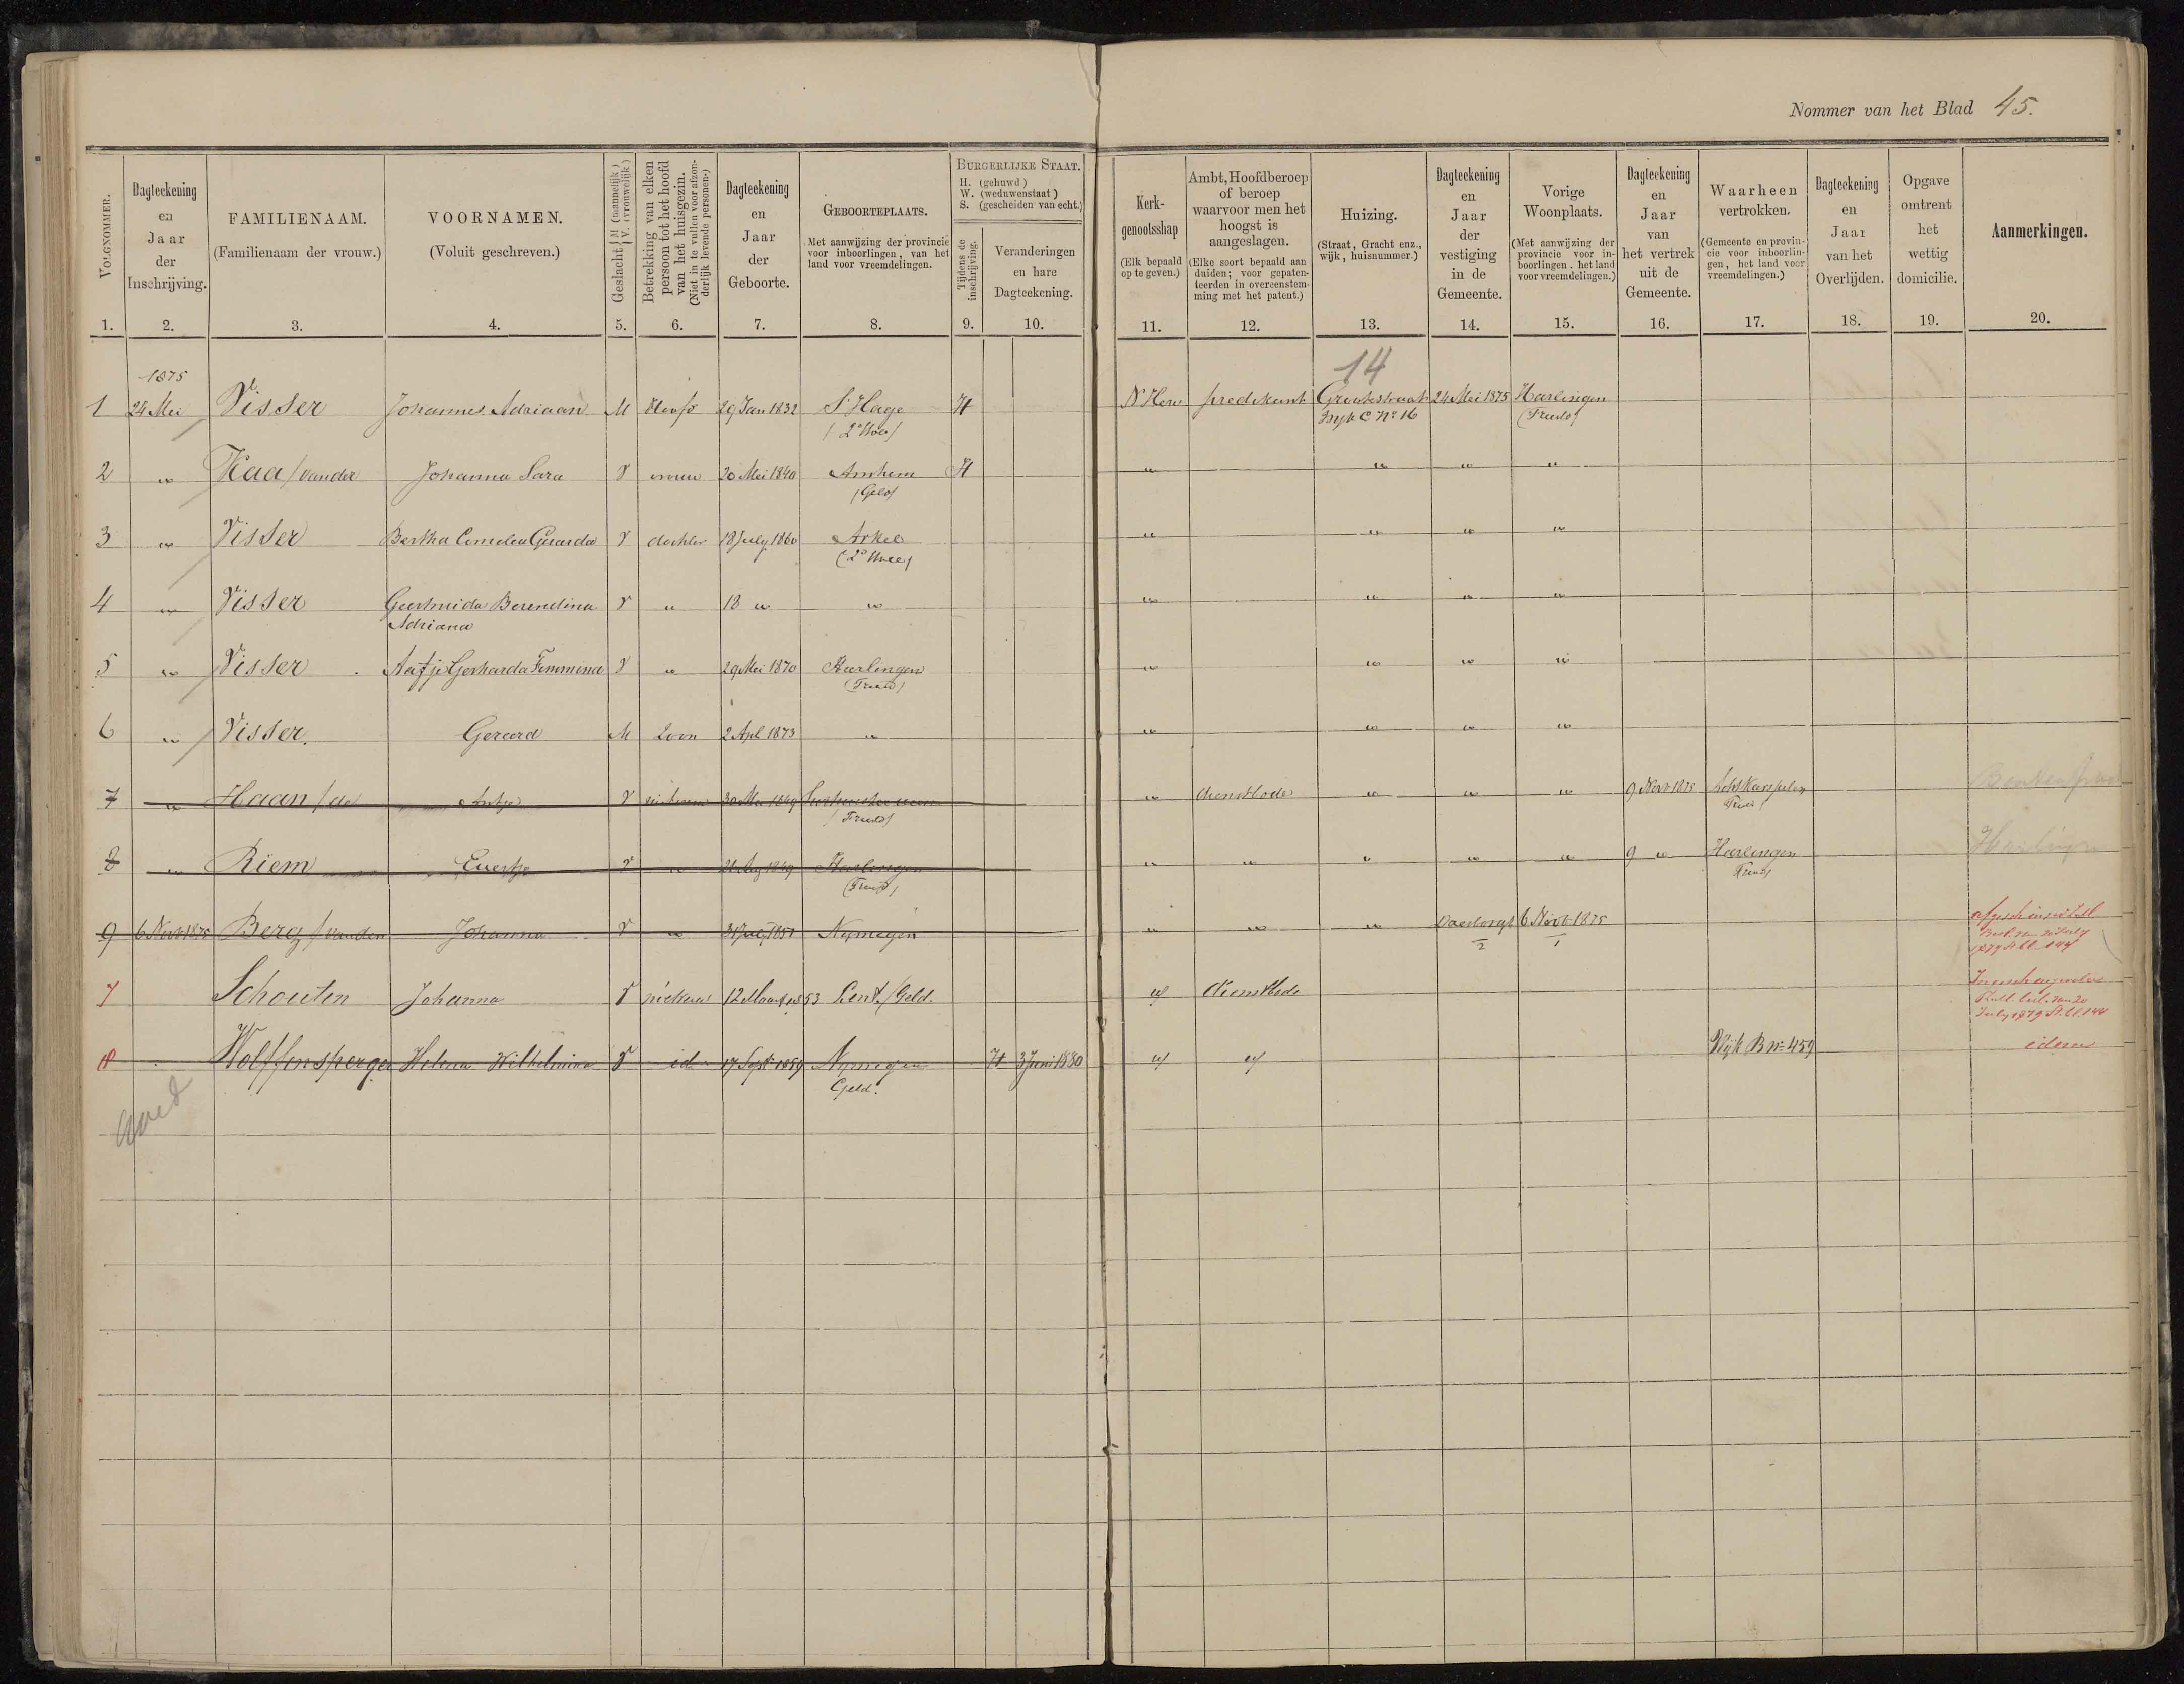 Nommer van het Blad 45.
VOLGNOMMER.
1.
Dagteekening
en
Jaar
der
Inschrijving.
2.
FAMILIENAAM.
(Familienaam der vrouw.)
3.
VOORNAMEN.
(Voluit geschreven.)
4.
Geslacht M (mannelijk)
V. (vrouwelijk)
5.
Betrekking van elken
persoon tot het hoofd
van het huisgezin.
(Niet in te vullen voor afzon-
derlijk levende personen.)
6.
Dagteekening
en
Jaar
der
Geboorte.
7.
GEBOORTEPLAATS.
Met aanwijzing der provincie
voor inboorlingen, van het
land voor vreemdelingen.
8.
BURGERLIJKE STAAT.
H. (gehuwd)
W. (weduwenstaat)
S. (gescheiden van echt.)
Tijdens de
inschrijving.
9.
Veranderingen
en hare
Dagteekening.
10.
Kerk-
genootsshap
(Elk bepaald
op te geven.)
11.
Ambt, Hoofdberoep
of beroep
waarvoor men het
hoogst is
aangeslagen.
(Elke soort bepaald aan
duiden; voor gepaten-
teerden in overeenstem-
ming met het patent.)
12.
Huizing.
(Straat, Gracht enz.,
wijk, huisnummer.)
13.
Dagteekening
en
Jaar
der
vestiging
in de
Gemeente.
14.
Vorige
Woonplaats.
(Met aanwijzing der
provincie voor in-
boorlingen, het land
voor vreemdelingen.)
15.
Dagteekening
en
Jaar
van
het vertrek
uit de
Gemeente.
16.
Waarheen
vertrokken.
(Gemeente en provin-
cie voor inboorlin-
gen, het land voor
vreemdelingen.)
17.
Dagteekening
en
Jaar
van het
Overlijden.
18.
Opgave
omtrent
het
wettig
domicilie.
19.
Aanmerkingen.
20.
1875
14
1 24 Mei Visser Johannes Adriaan M Hoofd 29 Jan 1832 S' Hage H N Herv predikant Grootestraat 24 Mei 1875 Harlingen
Wyk C No 16
2 " Kaa / van der Johanna Sara V vrouw 20 Mei 1840 Arnhem H " " " "
(Geld)
3 " Visser Bertha Cornelia Gerarda V dochter 18 July 1860 Arkel " " " "
4 " Visser Geertruida Berendina V " 18 " " " " " "
Adriana
5 " Visser Aafje Gerharda Femmina V " 29 Mei 1870 Harlingen " " " "
6 " Visser. Gerard M Zoon 2 Apl 1873 " " " " "
7 " Haan / de Antje V 1849 " dienstbode " " " 9 Novb 1875
8 " Riem Evertje V " 1849 Harlingen " " " " " 9 " Harlingen
9 6 Novb 1875 Berg / van den Johanna V " Nymegen " " " 6 Novb 1875
7 Schouten Johanna V 12 Maart 1853 Lent. / Geld. " dienstbode
July 1879 St. bl. 144
8 Wolffensperger Helena Wilhelmina V id 17 Sept 1859 Nymegen H 3 Juni 1880 " " Wijk B No 459 idem
Geld.
goed